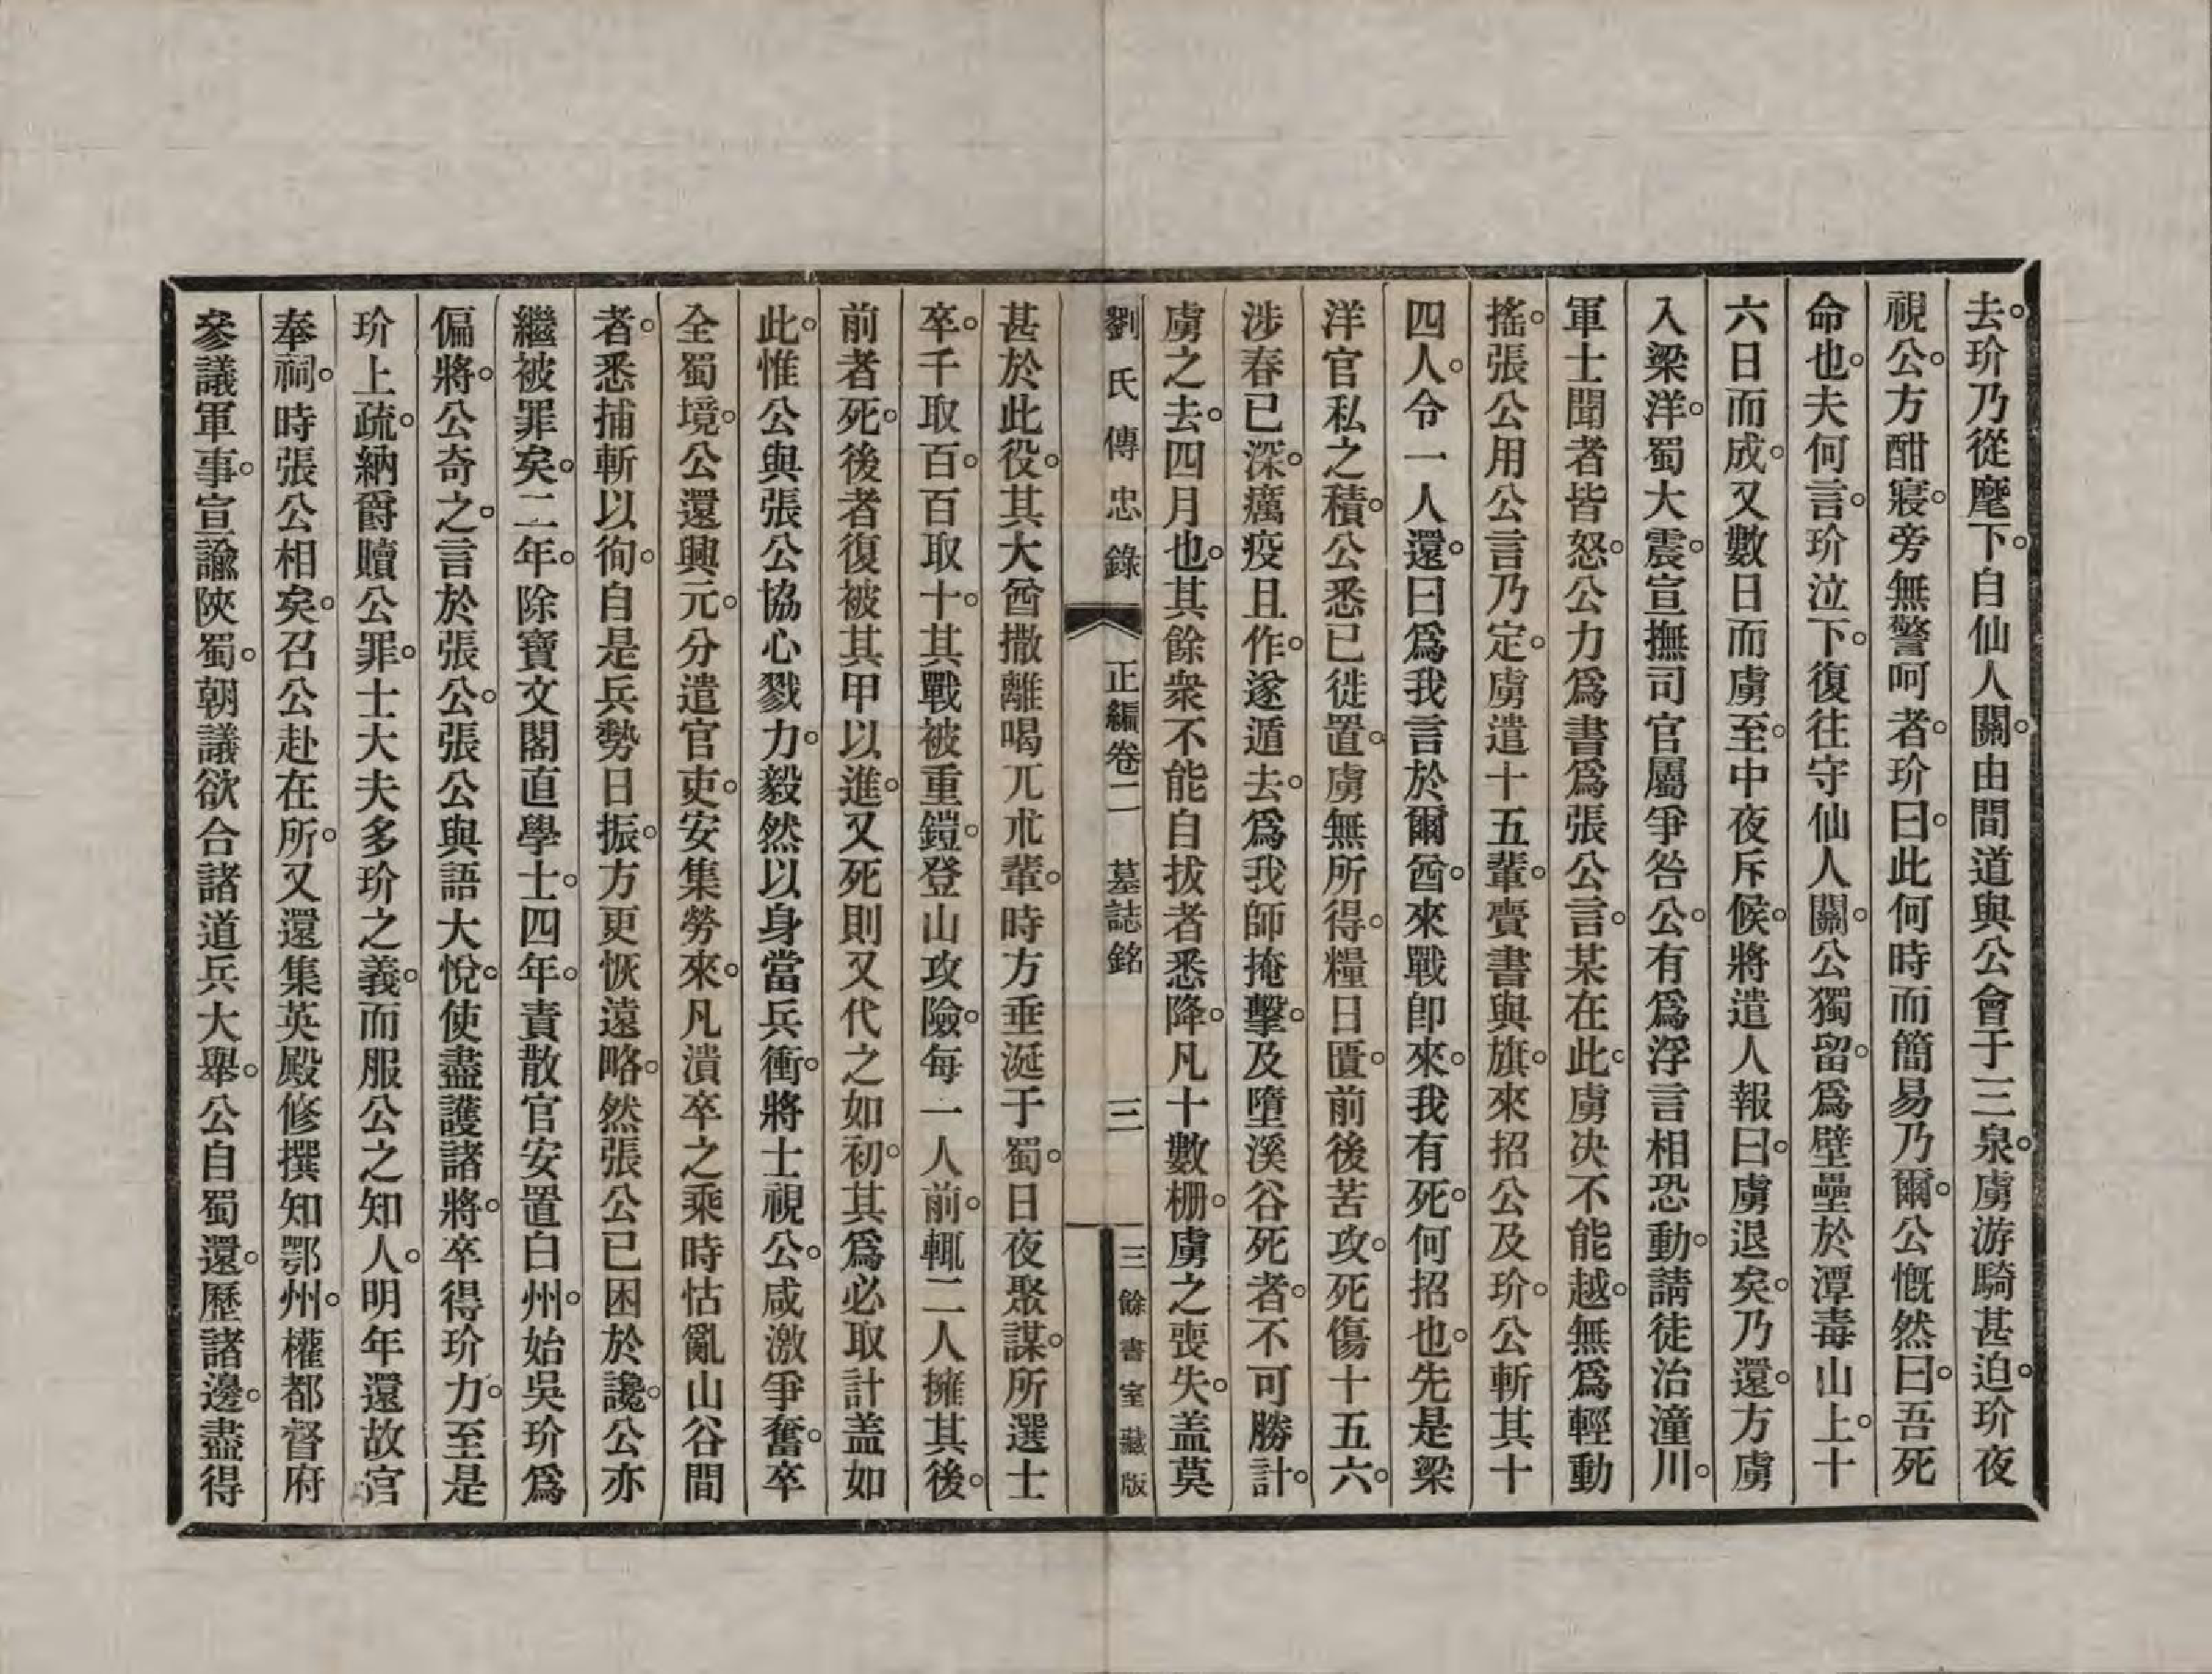 去。玠乃從麾下。自仙人關。由間道與公會于三泉。虜游騎甚迫。玠夜
視公。方酣寢。旁無警呵者。玠曰。此何時而簡易乃爾。公慨然曰。吾死
命也。夫何言。玠泣下。復往守仙人關。公獨留。爲壁壘於潭毒山上。十
六日而成。又數日而虜至。中夜斥候。將遣人報曰。虜退矣。乃還。方虜
入梁洋。蜀大震。宣撫司官屬爭咎公。有爲浮言相恐動。請徙治潼川。
軍士聞者皆怒。公力爲書爲張公言。某在此。虜决不能越。無爲輕動
搖。張公用公言乃定。虜遣十五輩。賫書與旗。來招公及玠。公斬其十
四人。令一人還。曰爲我言於爾酋。來戰卽來。我有死。何招也。先是梁
洋官私之積。公悉已徙置。虜無所得。糧日匱。前後苦攻。死傷十五六。
涉春已深。癘疫且作。遂遁去。爲我師掩擊。及墮溪谷死者。不可勝計。
虜之去。四月也。其餘衆不能自拔者悉降。凡十數栅。虜之喪失。盖莫
劉氏傳忠錄 正編卷二 墓誌銘 三 三餘書室藏版
甚於此役。其大酋撒離喝兀朮輩。時方垂涎于蜀。日夜聚謀。所選士
卒。千取百。百取十。其戰被重鎧。登山攻險。每一人前。輒二人擁其後。
前者死。後者復被其甲以進。又死則又代之如初。其爲必取計盖如
此。惟公與張公協心戮力。毅然以身當兵衝。將士視公。咸激爭奮。卒
全蜀境。公還興元。分遣官吏。安集勞來。凡潰卒之乘時怙亂山谷間
者。悉捕斬以徇。自是兵勢日振。方更恢遠略。然張公已困於讒。公亦
繼被罪矣。二年。除寶文閣直學士。四年。責散官安置白州。始吳玠爲
偏將。公奇之。言於張公。張公與語大悅。使盡護諸將。卒得玠力。至是
玠上疏。納爵贖公罪。士大夫多玠之義。而服公之知人。明年還故官
奉祠。時張公相矣。召公赴在所。又還集英殿修撰知鄂州。權都督府
參議軍事。宣諭陝蜀。朝議欲合諸道兵大舉。公自蜀還。歷諸邊。盡得